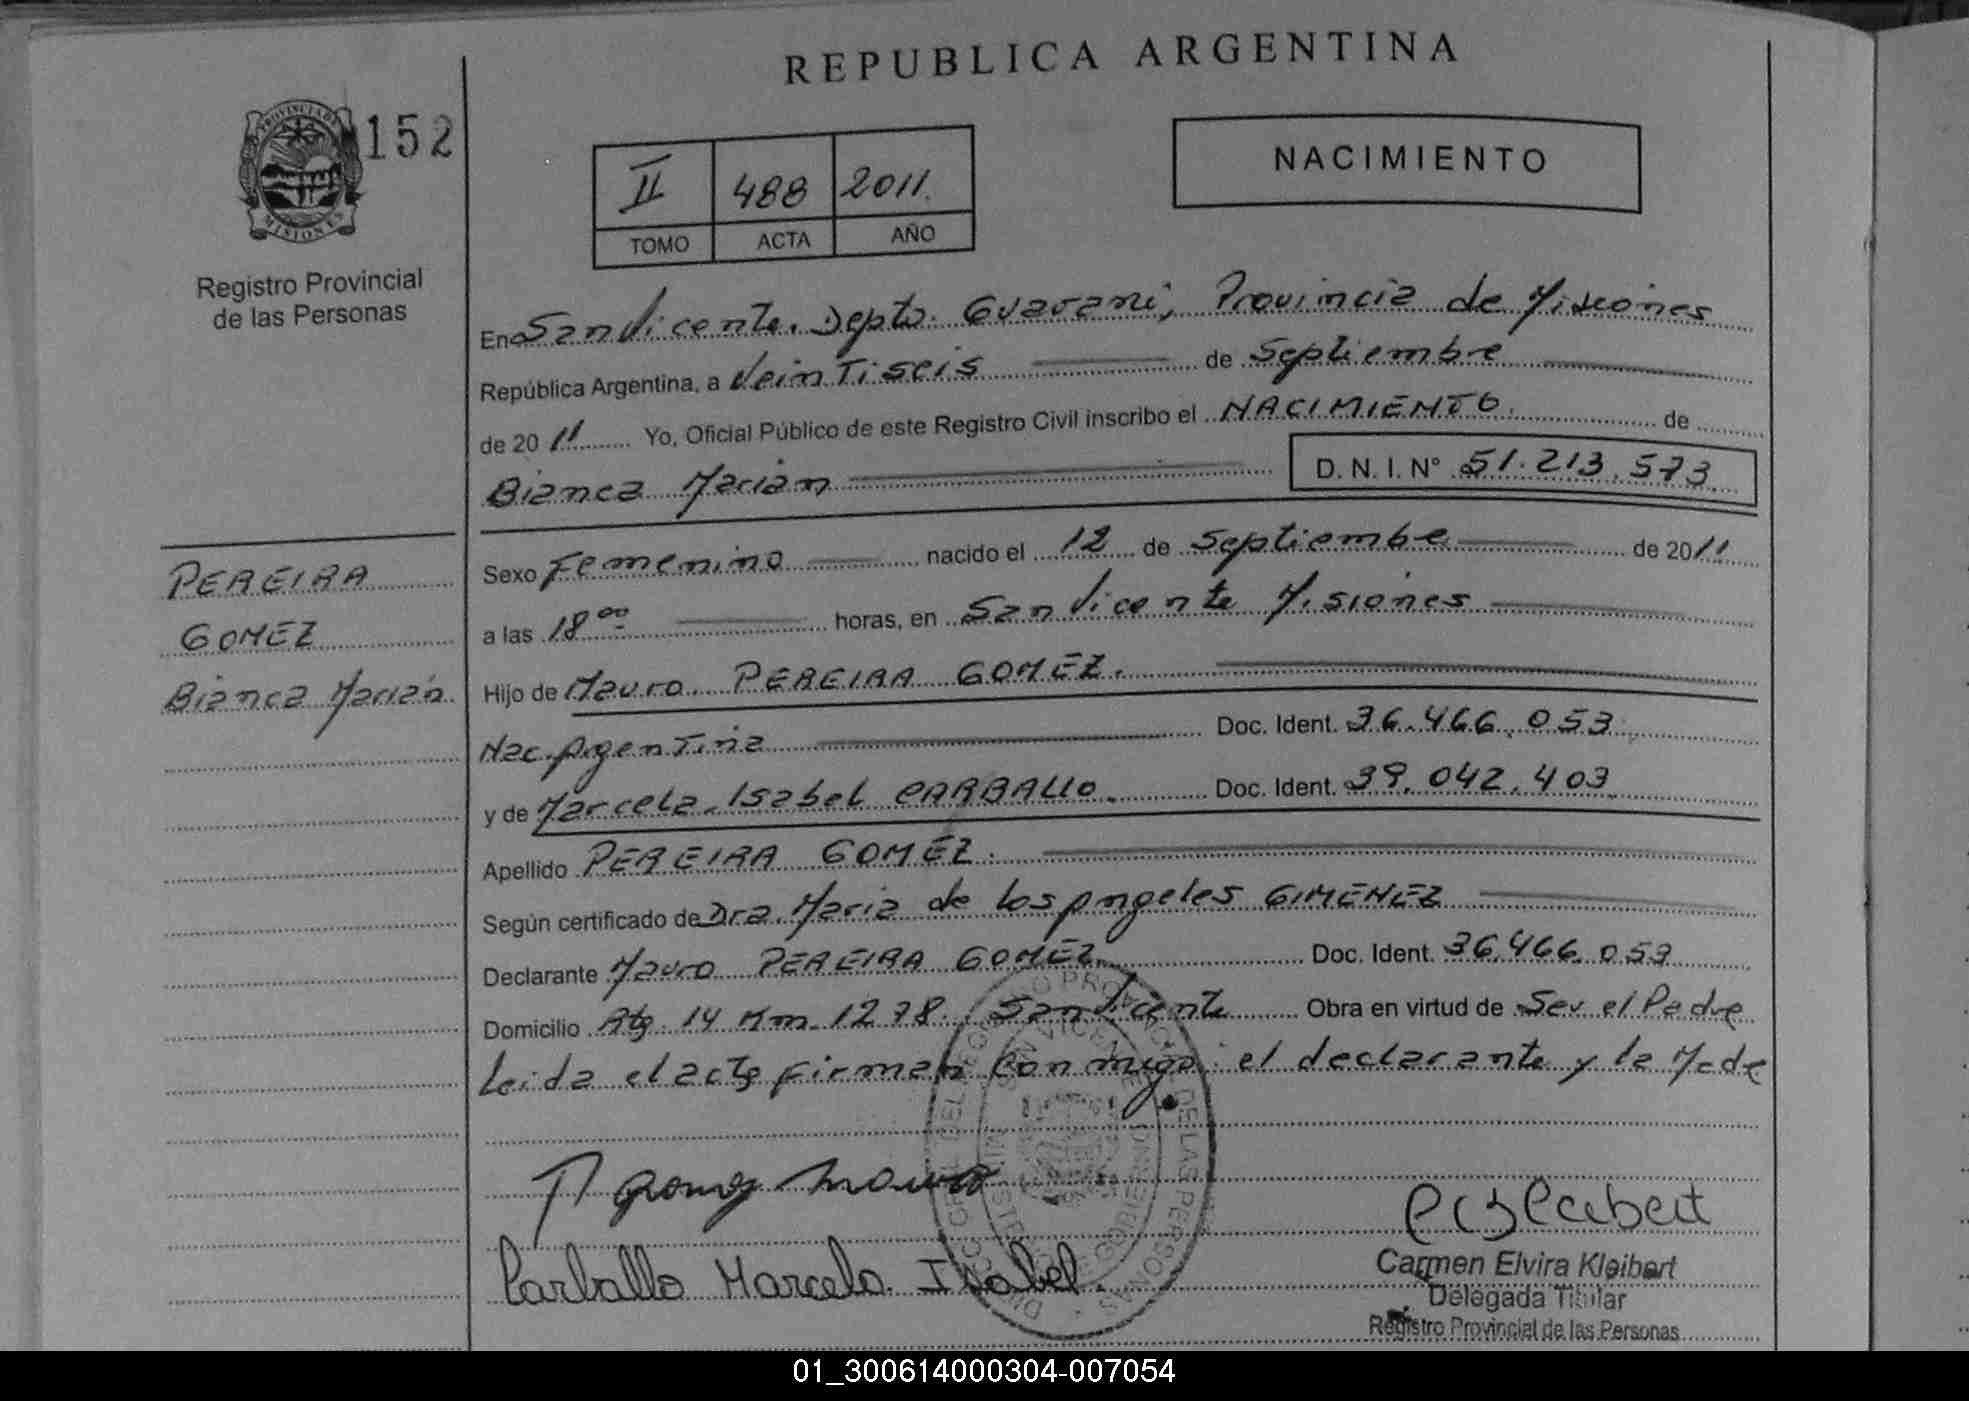 REPUBLICA ARGENTINA
PROVINCIA DE
MISIONES
152
Registro Provincial
de las Personas
II 488 2011.
TOMO ACTA AÑO
NACIMIENTO
En San Vicente. Depto. Guarani, Provincia de Misiones
República Argentina, a Veintiseis de Septiembre
de 2011 Yo, Oficial Público de este Registro Civil inscribo el NACIMIENTO. de
Bianca Marian D. N. I. N° 51.213.573
PEREIRA
GOMEZ
Bianca Marian
Sexo Femenino nacido el 12 de Septiembre de 2011
a las 18 00 horas, en San Vicente Misiones
Hijo de Mauro PEREIRA GOMEZ.
Nac. Argentina Doc. Ident. 36.466.053
y de Marcela Isabel CARBALLO. Doc. Ident. 39.042.403
Apellido PEREIRA GOMEZ.
Según certificado de Dra. Maria de los Angeles GIMENEZ
Declarante Mauro PEREIRA GOMEZ Doc. Ident. 36.466.053
Domicilio Rta. 14 Km. 1278. San Vicente Obra en virtud de Ser el Padre
Leida el acta firman conmigo: el declarante y la Madre
Carballo Marcela Isabel.
Carmen Elvira Kleibert
Delegada Titular
Registro Provincial de las Personas
01_300614000304-007054